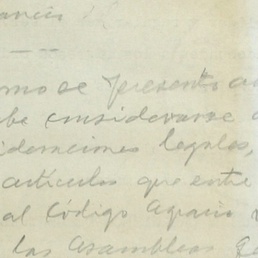 mo se presento
be considerarse
ideraciones legales,
articulos que entre
al Código Agrario
las Asambleas Ge